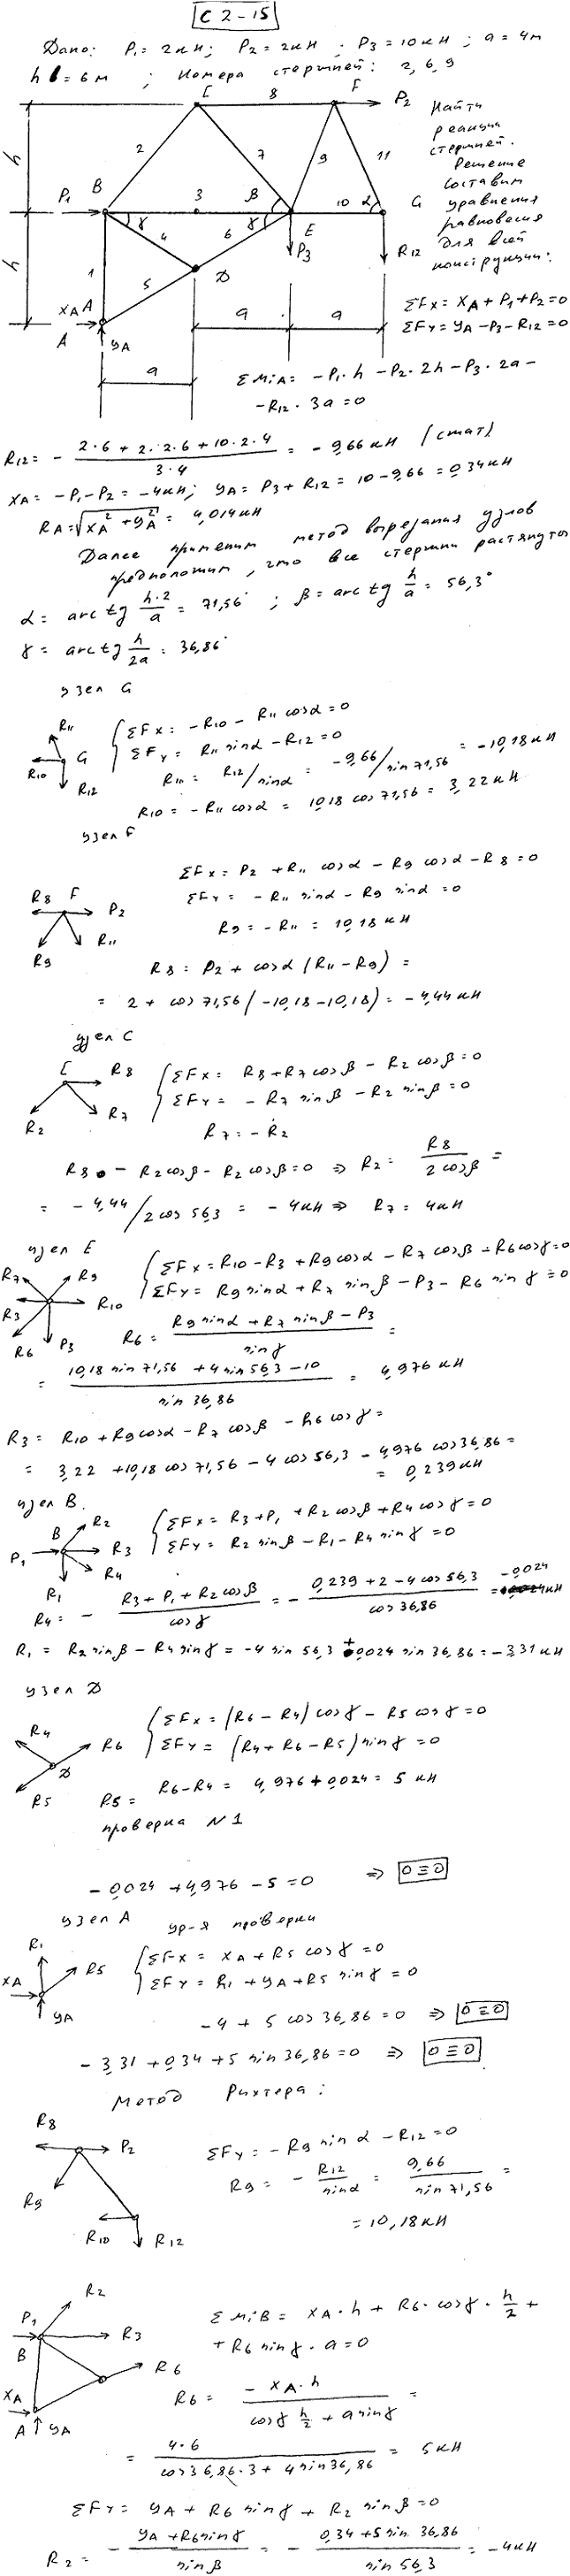 С 2 - 15
Дано: P₁ = 2кН; P₂ = 2кН; P₃ = 10кН; a = 4м
h = 6м ; Номера стержней: 2, 6, 9
C 8 F P₂
Найти
реакции
стержней.
Решение
составим
уравнения
равновесия
для всей
конструкции:
h 2 7 9 11
P₁ B 3 β 10 α G
γ 4 γ 6 E
P₃ R₁₂
h 1 5 D
X_A A
A Y_A
a a
a
ΣFx = X_A + P₁ + P₂ = 0
ΣFy = Y_A - P₃ - R₁₂ = 0
ΣMiA = -P₁·h - P₂·2h - P₃·2a -
- R₁₂·3a = 0
R₁₂ = - (2·6 + 2·2·6 + 10·2·4) / (3·4) = - 9,66 кН (сжат)
X_A = -P₁ - P₂ = -4кН; Y_A = P₃ + R₁₂ = 10 - 9,66 = 0,34кН
R_A = √(X_A² + Y_A²) = 4,014кН
Далее применим метод вырезания узлов
предположим, что все стержни растянуты
α = arctg h·2/a = 71,56° ; β = arctg h/a = 56,3°
γ = arctg h/2a = 36,86°
узел G
R₁₁ G R₁₀ R₁₂
ΣFx = -R₁₀ - R₁₁ cosα = 0
ΣFy = R₁₁ sinα - R₁₂ = 0
R₁₁ = R₁₂/sinα = -9,66/sin 71,56 = -10,18 кН
R₁₀ = -R₁₁ cosα = 10,18 cos 71,56 = 3,22 кН
узел F
R₈ F P₂ R₉ R₁₁
ΣFx = P₂ + R₁₁ cosα - R₉ cosα - R₈ = 0
ΣFy = -R₁₁ sinα - R₉ sinα = 0
R₉ = -R₁₁ = 10,18 кН
R₈ = P₂ + cosα (R₁₁ - R₉) =
= 2 + cos 71,56 (-10,18 - 10,18) = -4,44 кН
узел C
C R₈ R₂ R₇
ΣFx = R₈ + R₇ cosβ - R₂ cosβ = 0
ΣFy = -R₇ sinβ - R₂ sinβ = 0
R₇ = -R₂
R₈ - R₂cosβ - R₂cosβ = 0 ⇒ R₂ = R₈ / (2cosβ) =
= -4,44/2cos 56,3 = -4кН ⇒ R₇ = 4кН
узел E
R₇ R₉ R₁₀ R₃ R₆ P₃
ΣFx = R₁₀ - R₃ + R₉cosα - R₇cosβ - R₆cosγ = 0
ΣFy = R₉ sinα + R₇ sinβ - P₃ - R₆ sinγ = 0
R₆ = (R₉ sinα + R₇ sinβ - P₃) / sinγ =
= (10,18 sin 71,56 + 4 sin 56,3 - 10) / sin 36,86 = 4,976 кН
R₃ = R₁₀ + R₉cosα - R₇ cosβ - R₆ cosγ =
= 3,22 + 10,18 cos 71,56 - 4 cos 56,3 - 4,976 cos 36,86 =
= 0,239кН
узел B.
P₁ B R₂ R₃ R₄ R₁
ΣFx = R₃ + P₁ + R₂cosβ + R₄cosγ = 0
ΣFy = R₂ sinβ - R₁ - R₄ sinγ = 0
R₄ = - (R₃ + P₁ + R₂cosβ) / cosγ = - (0,239 + 2 - 4cos 56,3) / cos 36,86 = -0,024 кН
R₁ = R₂ sinβ - R₄ sinγ = -4 sin 56,3 + 0,024 sin 36,86 = -3,31 кН
узел D
R₄ R₆ D R₅
ΣFx = (R₆ - R₄) cosγ - R₅ cosγ = 0
ΣFy = (R₄ + R₆ - R₅) sinγ = 0
R₅ = R₆ - R₄ = 4,976 + 0,024 = 5 кН
проверка N 1
-0,024 + 4,976 - 5 = 0 ⇒ 0 ≡ 0
узел A ур-я проверки
R₁ R₅ X_A Y_A
ΣFx = X_A + R₅ cosγ = 0
ΣFy = R₁ + Y_A + R₅ sinγ = 0
-4 + 5 cos 36,86 = 0 ⇒ 0 ≡ 0
-3,31 + 0,34 + 5 sin 36,86 = 0 ⇒ 0 ≡ 0
Метод Риттера:
R₈ P₂ R₉ R₁₀ R₁₂
ΣFy = -R₉ sinα - R₁₂ = 0
R₉ = - R₁₂/sinα = 9,66/sin 71,56 =
= 10,18 кН
R₂ P₁ B R₃ R₆ X_A A Y_A
ΣMiB = X_A·h + R₆·cosγ·h/2 +
+ R₆ sinγ·a = 0
R₆ = -X_A·h / (cosγ h/2 + a sinγ) =
= 4·6 / (cos 36,86·3 + 4 sin 36,86) = 5 кН
ΣFy = Y_A + R₆ sinγ + R₂ sinβ = 0
R₂ = - (Y_A + R₆ sinγ) / sinβ = - (0,34 + 5 sin 36,86) / sin 56,3 = -4кН